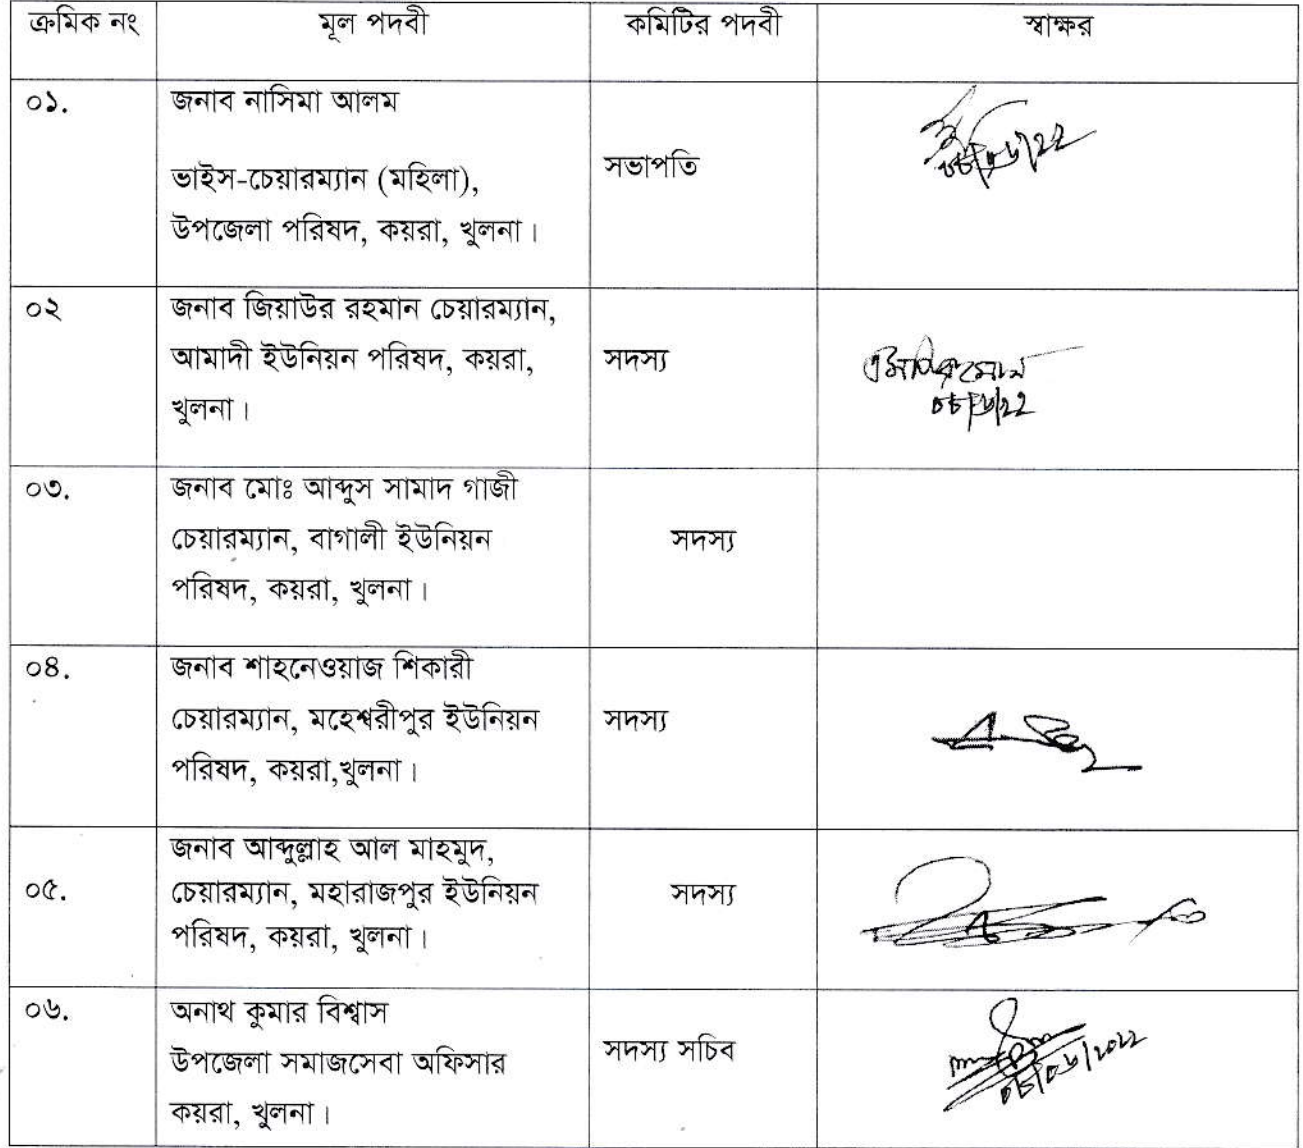 ক্রমিক নং মূল পদবী কমিটির পদবী স্বাক্ষর
০১. জনাব নাসিমা আলম
ভাইস-চেয়ারম্যান (মহিলা),
উপজেলা পরিষদ, কয়রা, খুলনা।
সভাপতি
০২ জনাব জিয়াউর রহমান চেয়ারম্যান,
আমাদী ইউনিয়ন পরিষদ, কয়রা,
খুলনা।
সদস্য
০৩. জনাব মোঃ আব্দুস সামাদ গাজী
চেয়ারম্যান, বাগালী ইউনিয়ন
পরিষদ, কয়রা, খুলনা।
সদস্য
০৪. জনাব শাহনেওয়াজ শিকারী
চেয়ারম্যান, মহেশ্বরীপুর ইউনিয়ন
পরিষদ, কয়রা,খুলনা।
সদস্য
০৫. জনাব আব্দুল্লাহ আল মাহমুদ,
চেয়ারম্যান, মহারাজপুর ইউনিয়ন
পরিষদ, কয়রা, খুলনা।
সদস্য
০৬. অনাথ কুমার বিশ্বাস
উপজেলা সমাজসেবা অফিসার
কয়রা, খুলনা।
সদস্য সচিব
০৮/০৬/২০২২